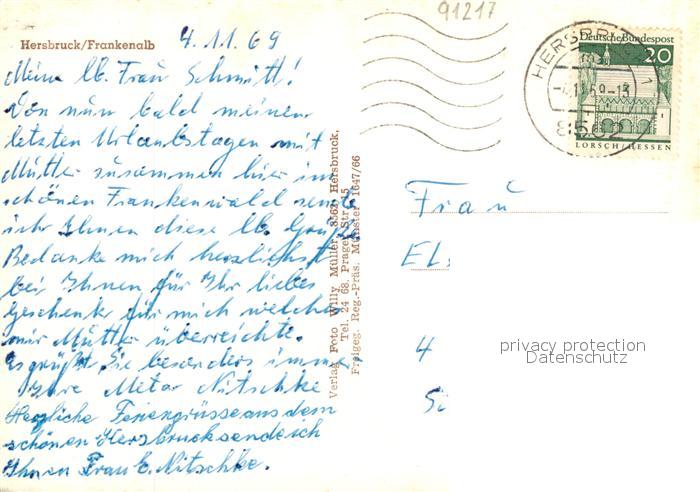 91217
Hersbruck/Frankenalb
4.11.69
Meine lb. Frau Schmitt!
Von nun bald meinen
letzten Urlaubstagen mit
Mutter zusammen hier im
schönen Frankenwald sende
ich Ihnen diese lb. Grüße
Bedanke mich herzlichst
bei Ihnen für Ihr liebes
Geschenk für mich welches
mir Mutter überreichte.
Es grüßt Sie besonders immer
Ihre Meta Nitschke
Herzliche Feriengrüsse aus dem
schönen Hersbruck sende ich
Ihnen Frau E. Nitschke.
Verlag Foto Willy Müller, 8562 Hersbruck,
Tel. 24 68, Prager Str. 15
Freigeg. Reg.-Präs. Münster 1647/66
HERSBRUCK 1
8562
Deutsche Bundespost
20
LORSCH/HESSEN
Frau
El
4
privacy protection
Datenschutz